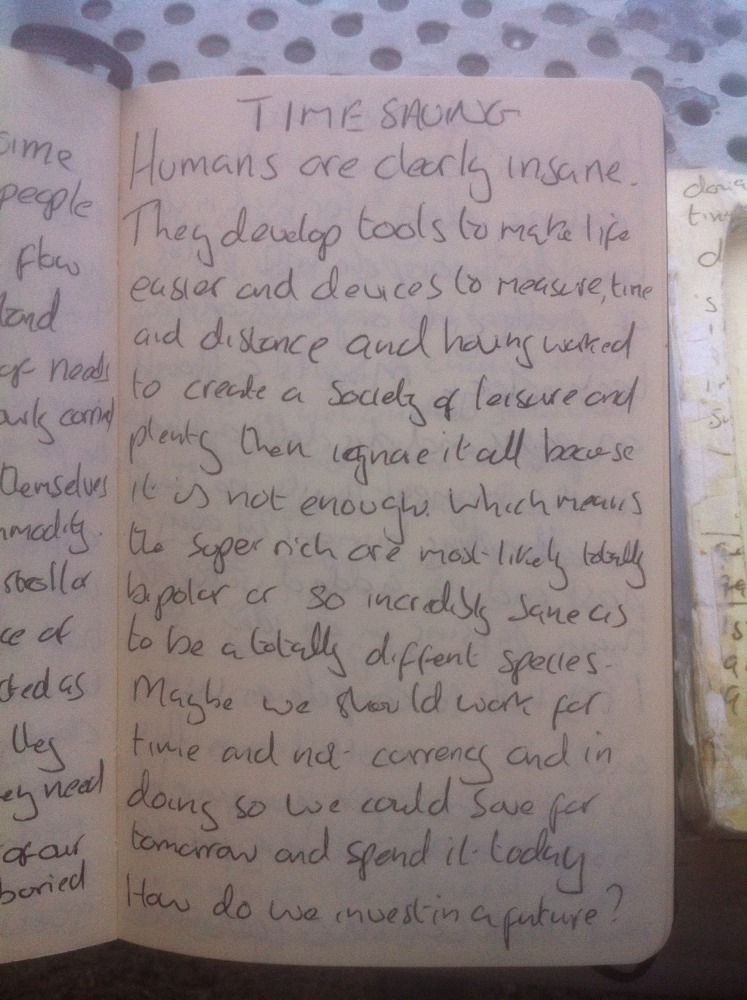 TIME SAVING
Humans are clearly insane.
They develop tools to make life
easier and devices to measure, time
and distance and having worked
to create a society of leisure and
plenty then ignore it all because
it is not enough. Which means
the super rich are most-likely totally
bipolar or so incredibly sane as
to be a totally diffent species.
Maybe we should work for
time and not currency and in
doing so we could save for
tomorrow and spend it today
How do we invest in a future?
people
flow
of needs
themselves
ce of
they
ey need
of our
buried